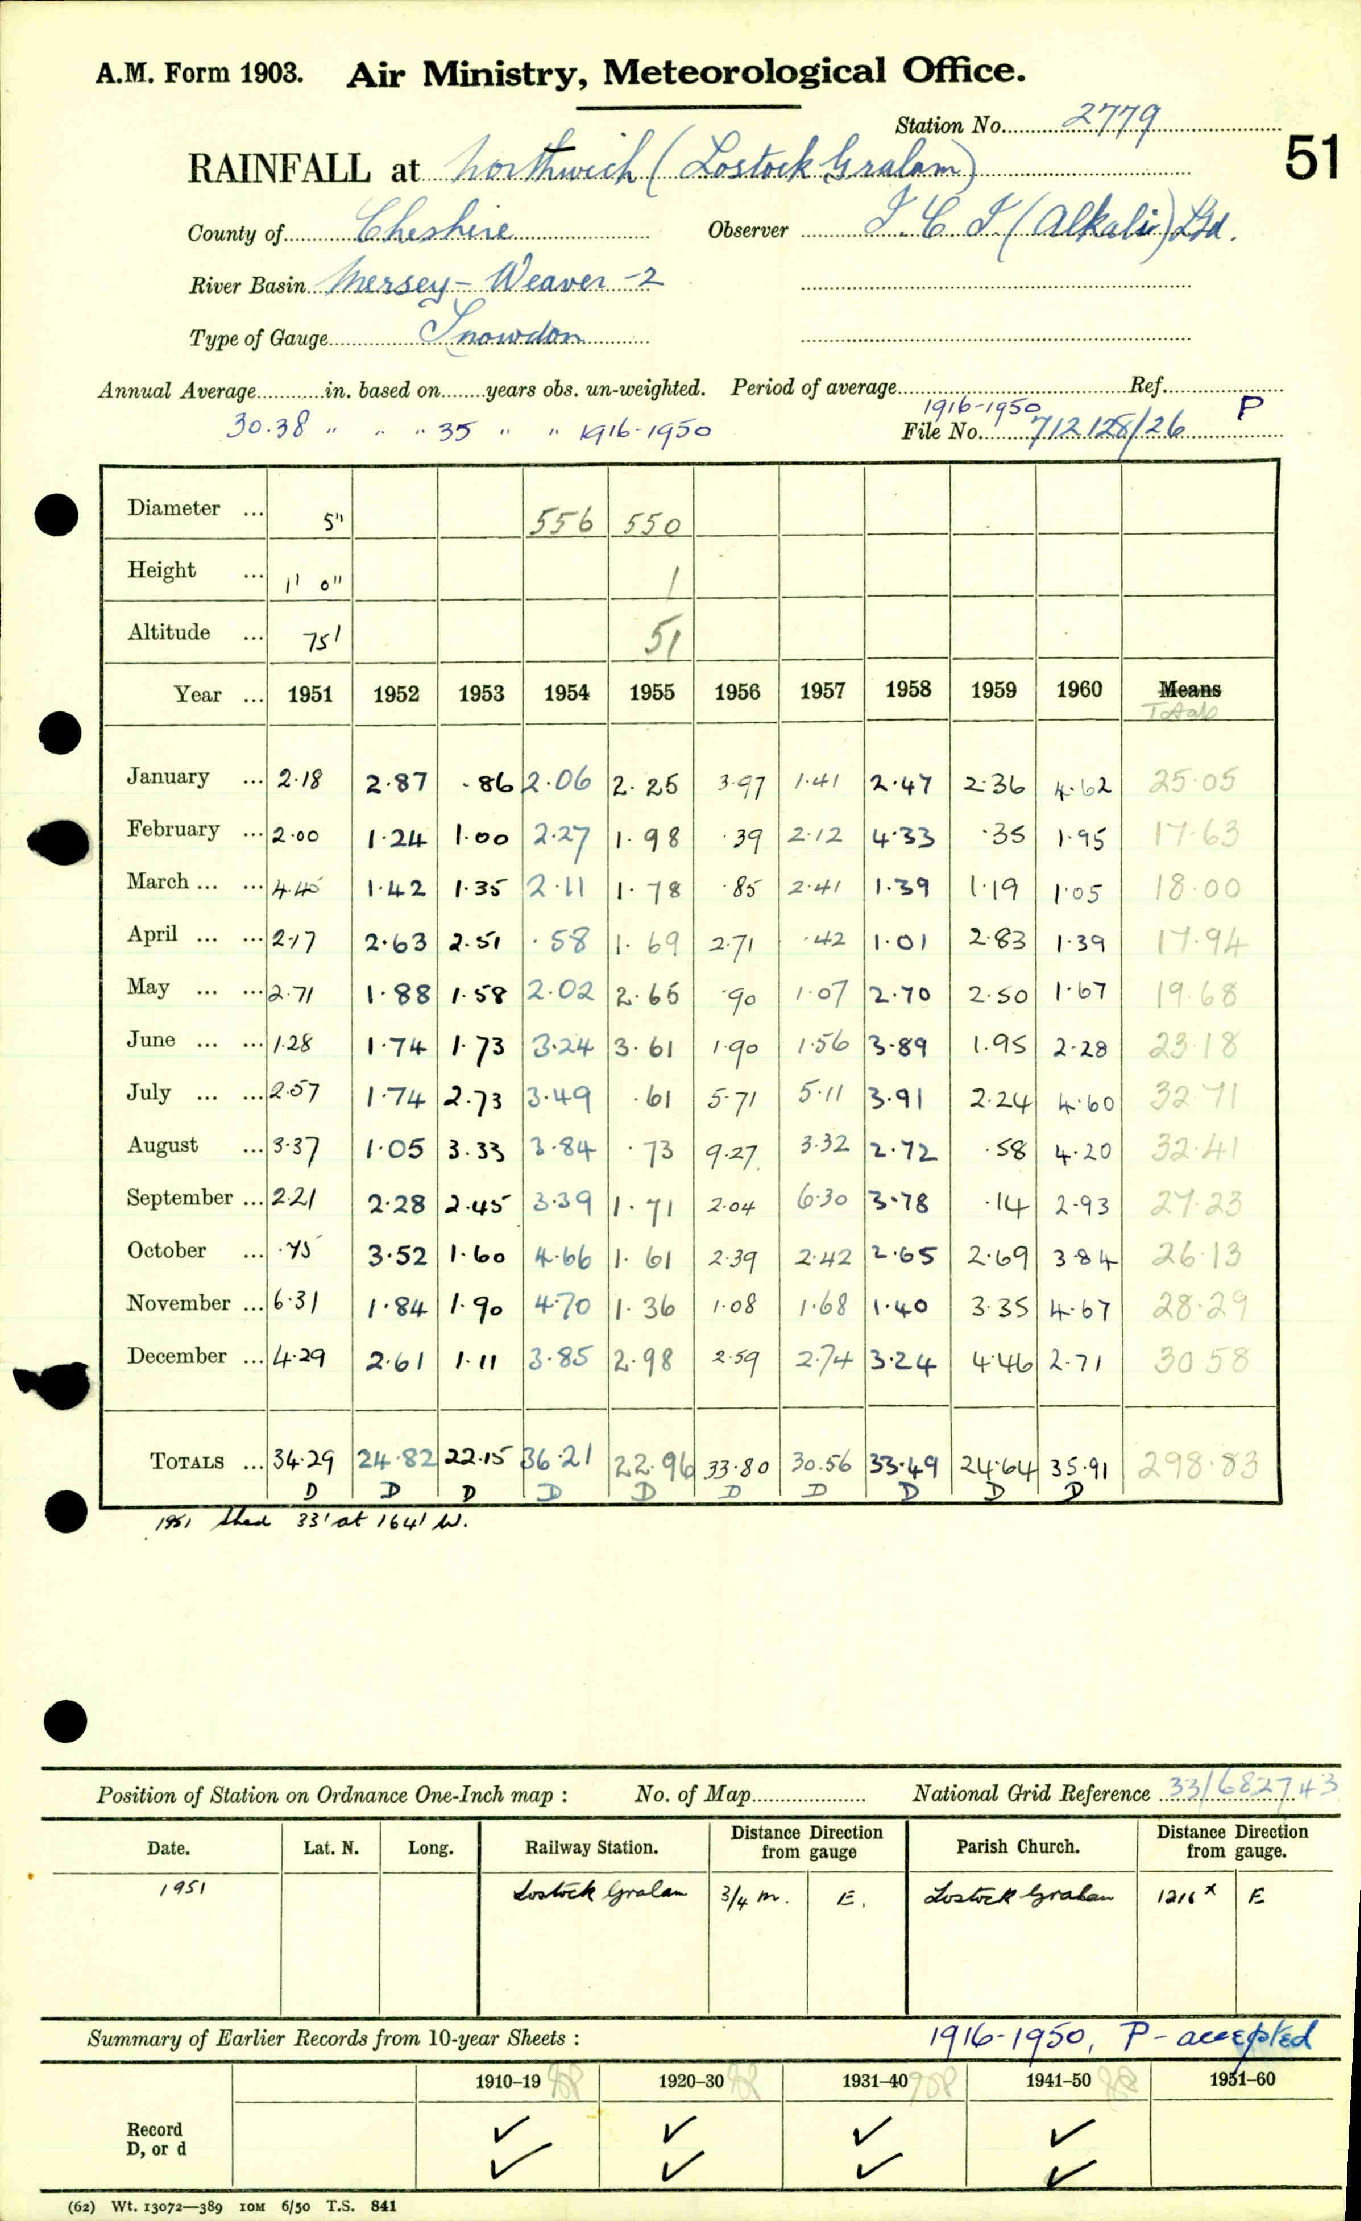 A.M. Form 1903. Air Ministry, Meteorological Office.
Station No. 2779
51
RAINFALL at Northwich (Lostock Gralam)
County of Cheshire Observer I.C.I (Alkali) Ltd.
River Basin Mersey - Weaver - 2
Type of Gauge Snowdon
Annual Average............in. based on........years obs. un-weighted. Period of average............ Ref............
30.38 " " " 35 " " 1916-1950 1916-1950 P
File No. 712128/26
Diameter ... 5" 556 550
Height ... 1' 0" 1
Altitude ... 75' 51
Year ... 1951 1952 1953 1954 1955 1956 1957 1958 1959 1960 Means
Totals
January ... 2.18 2.87 .86 2.06 2.25 3.97 1.41 2.47 2.36 4.62 25.05
February ... 2.00 1.24 1.00 2.27 1.98 .39 2.12 4.33 .35 1.95 17.63
March ... ... 4.45 1.42 1.35 2.11 1.78 .85 2.41 1.39 1.19 1.05 18.00
April ... ... 2.17 2.63 2.51 .58 1.69 2.71 .42 1.01 2.83 1.39 17.94
May ... ... 2.71 1.88 1.58 2.02 2.65 .90 1.07 2.70 2.50 1.67 19.68
June ... ... 1.28 1.74 1.73 3.24 3.61 1.90 1.56 3.89 1.95 2.28 23.18
July ... ... 2.57 1.74 2.73 3.49 .61 5.71 5.11 3.91 2.24 4.60 32.71
August ... 3.37 1.05 3.33 3.84 .73 9.27 3.32 2.72 .58 4.20 32.41
September ... 2.21 2.28 2.45 3.39 1.71 2.04 6.30 3.78 .14 2.93 27.23
October ... .75 3.52 1.60 4.66 1.61 2.39 2.42 2.65 2.69 3.84 26.13
November ... 6.31 1.84 1.90 4.70 1.36 1.08 1.68 1.40 3.35 4.67 28.29
December ... 4.29 2.61 1.11 3.85 2.98 2.59 2.74 3.24 4.46 2.71 30.58
TOTALS ... 34.29 24.82 22.15 36.21 22.96 33.80 30.56 33.49 24.64 35.91 298.83
D D D D D D D D D D
1951 Shed 33' at 164' W.
Position of Station on Ordnance One-Inch map : No. of Map............ National Grid Reference 33/682743
Date. Lat. N. Long. Railway Station. Distance Direction from gauge Parish Church. Distance Direction from gauge.
1951 Lostock Gralam 3/4 m. E. Lostock Gralam 1216 x E
Summary of Earlier Records from 10-year Sheets : 1916-1950, P - accepted
1910–19 1920–30 1931–40 1941–50 1951–60
Record ✓ ✓ ✓ ✓
D, or d ✓ ✓ ✓ ✓
(62) Wt. 13072—389 10M 6/50 T.S. 841